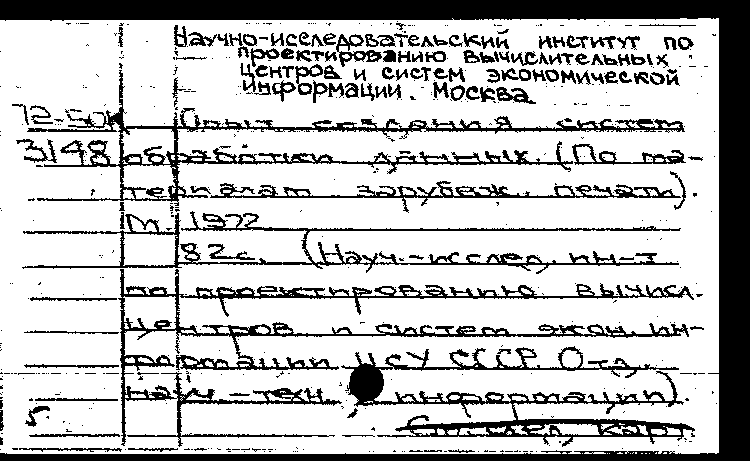 Научно-исследовательский институт по
проектированию вычислительных
центров и систем экономической
информации. Москва
72-50к
Опыт создания систем
3148 обработки данных. (По ма-
териалам зарубеж. печати).
М. 1972
82с. (Науч.-исслед. ин-т
по проектированию вычисл.
центров и систем экон. ин-
формации ЦСУ СССР. Отд.
науч.-техн. информации).
5 См. след. карт.